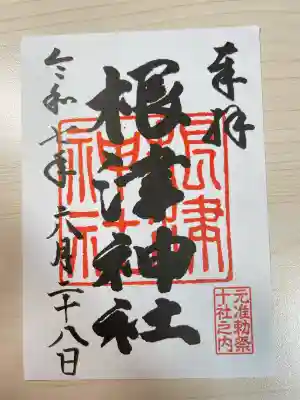 奉拝
根津神社
根津神社
令和七年六月二十八日
元准勅祭
十社之内